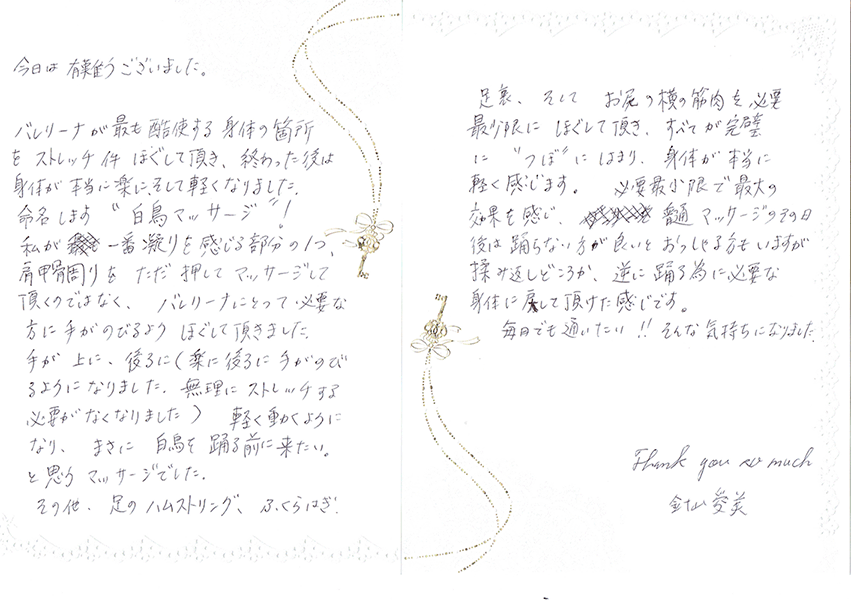 今日は有難うございました。
バレリーナが最も酷使する身体の箇所
をストレッチ件ほぐして頂き、終わった後は
身体が本当に楽に、そして軽くなりました。
命名します "白鳥マッサージ"!
私が一番凝りを感じる部分の1つ、
肩甲骨周りをただ押してマッサージして
頂くのではなく、バレリーナにとって必要な
方に手がのびるようほぐして頂きました。
手が上に、後ろに(楽に後ろに手がのび
るようになりました。無理にストレッチする
必要がなくなりました) 軽く動くように
なり、まさに白鳥を踊る前に来たい。
と思うマッサージでした。
その他、足のハムストリング、ふくらはぎ、
足裏、そしてお尻の横の筋肉を必要
最少限にほぐして頂き、すべてが完璧
に "つぼ" にはまり、身体が本当に
軽く感じます。必要最少限で最大の
効果を感じ、普通マッサージのその日
後は踊らない方が良いとおっしゃる方もいますが
揉み返しどころか、逆に踊る為に必要な
身体に戻して頂けた感じです。
毎日でも通いたい!!そんな気持ちになりました。
Thank you so much
愛美